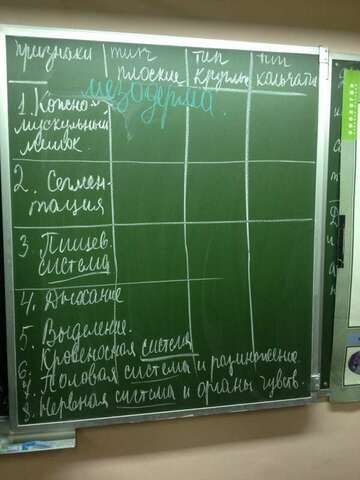 признаки тип плоские тип круглые тип кольчаты
мезодерма.
1. Кожно-
мускульный
мешок.
2. Сегмен-
тация
3 Пищев.
система
4. Дыхание
5. Выделение.
6. Кровеносная система
7. Половая система и размножение
8. Нервная система и органы чувств.